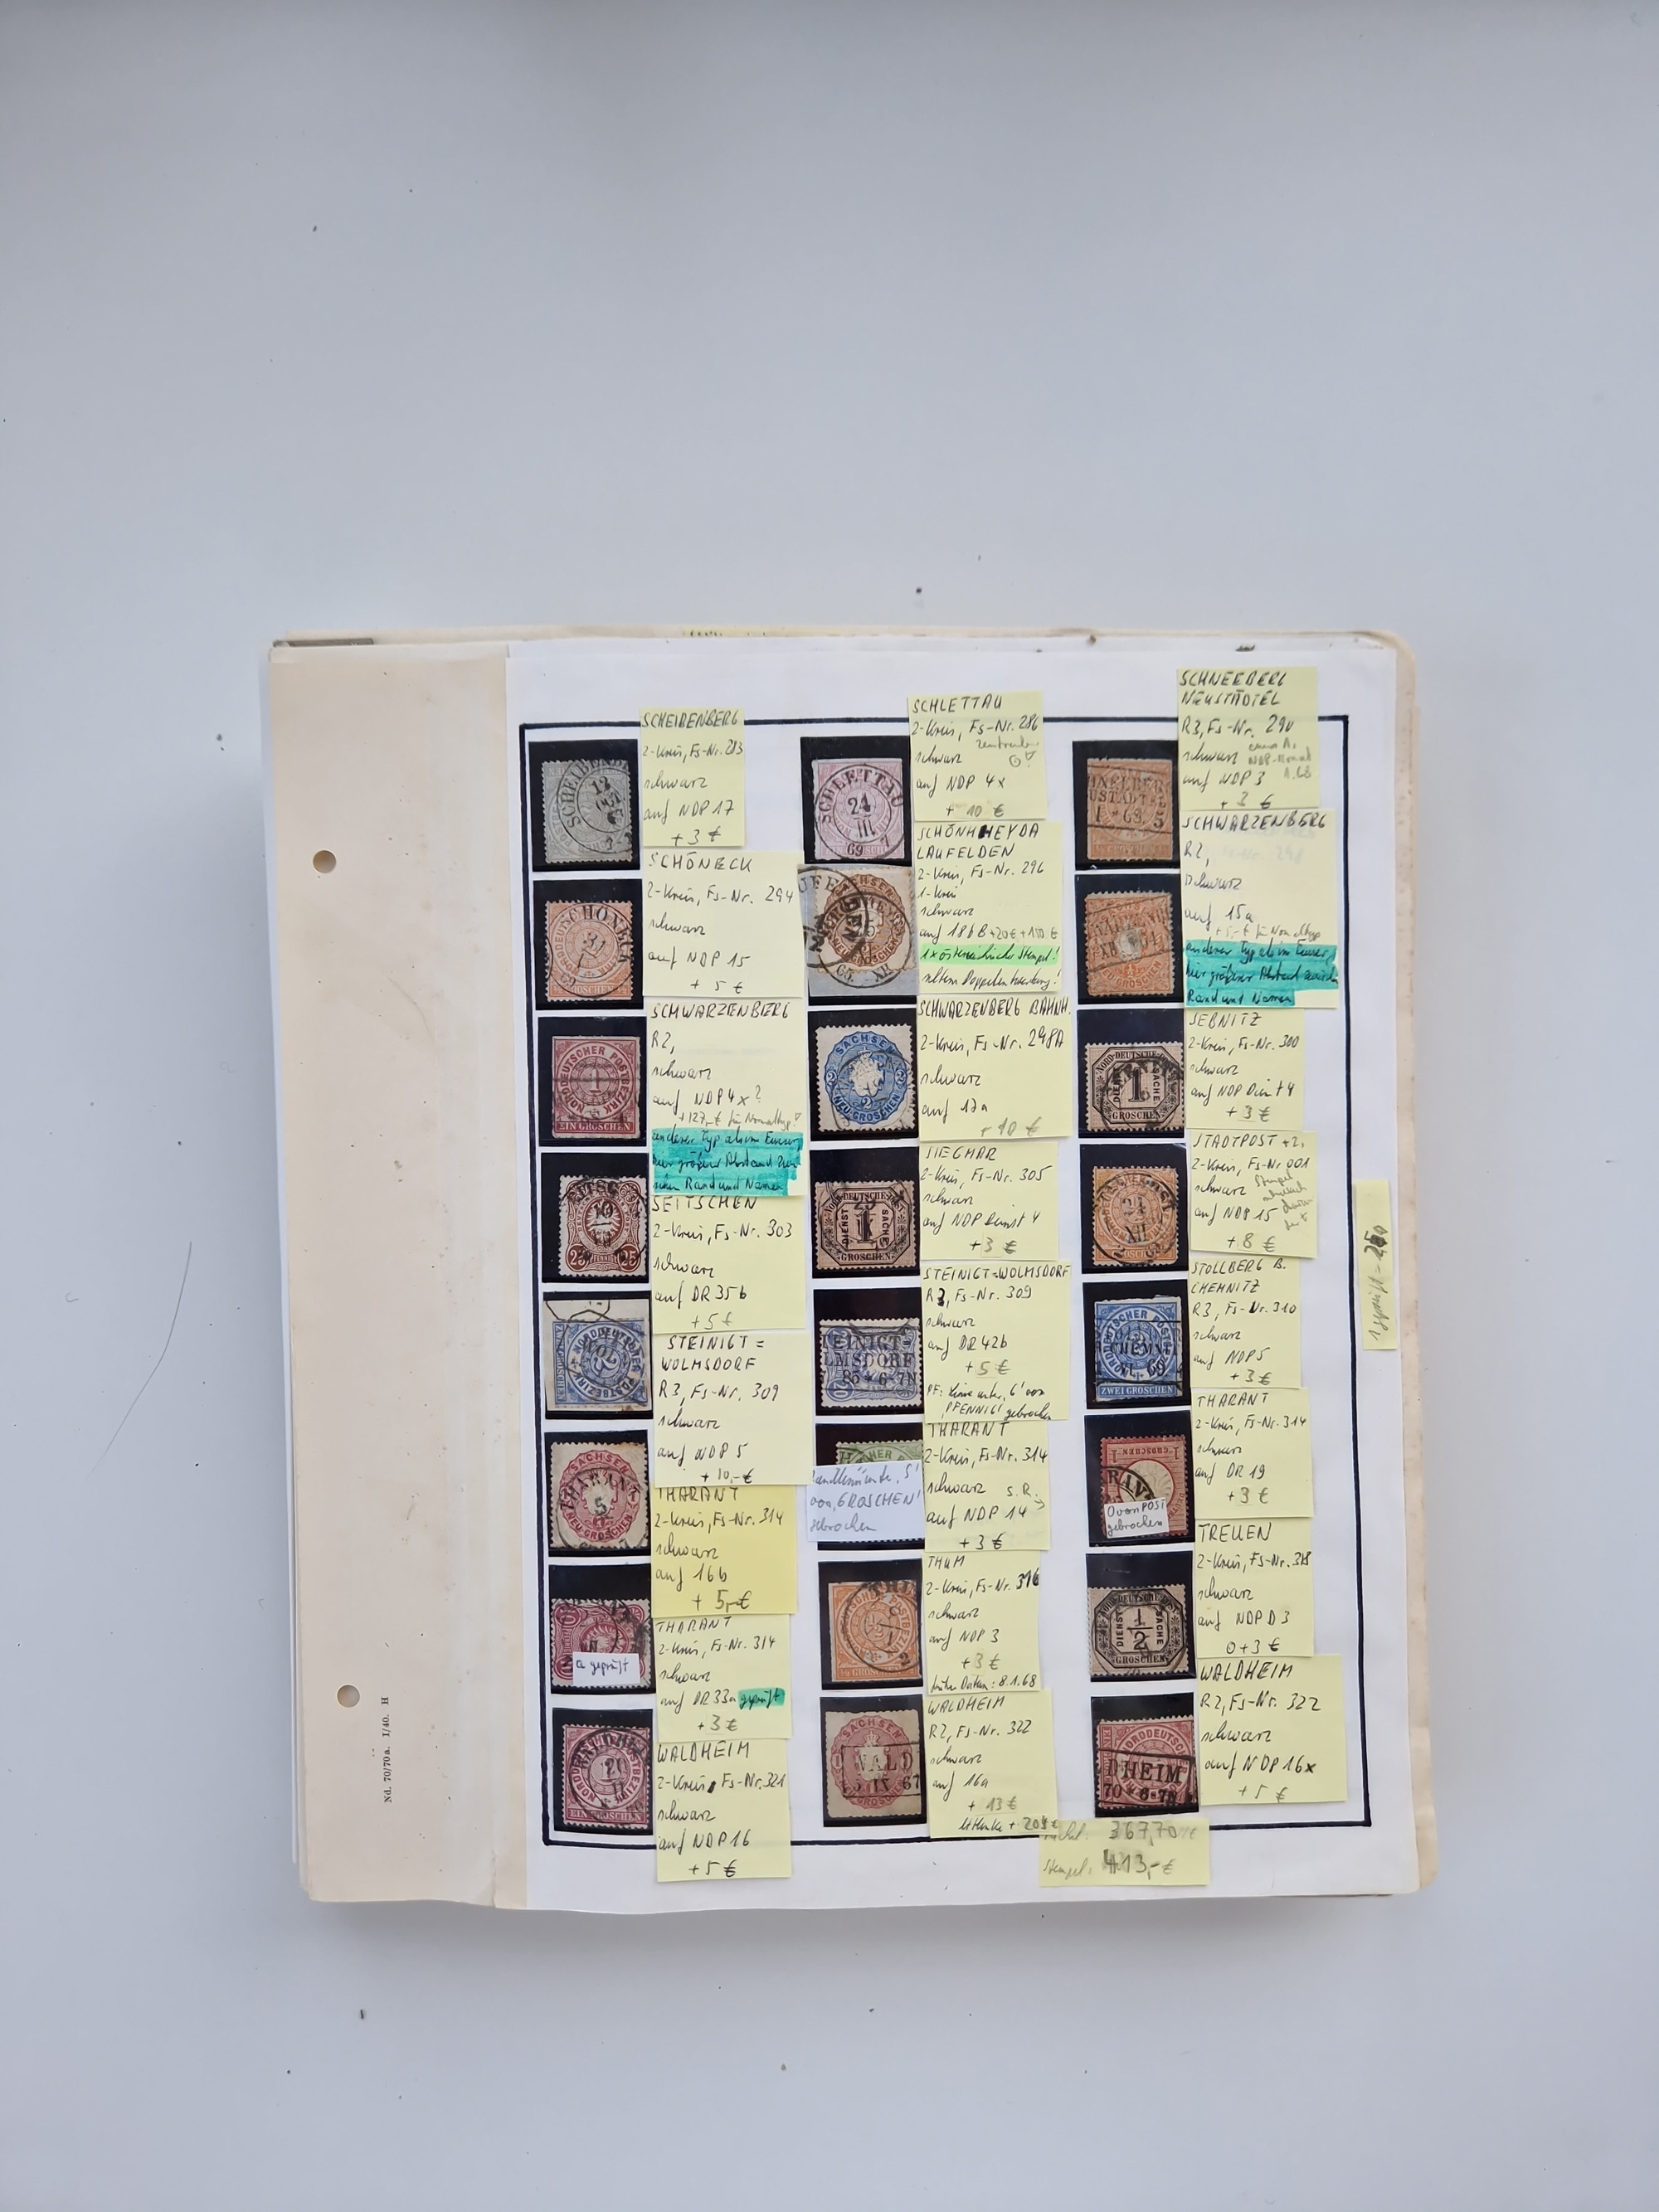 SCHEIBENBERG
2-Kreis, Fs-Nr. 283
schwarz
auf NDP 17
+ 3 €
SCHLETTAU
2-Kreis, Fs-Nr. 286
schwarz
auf NDP 4x
+ 10 €
SCHNEEBERG
NEUSTÄDTEL
R3, Fs-Nr. 290
schwarz
auf NDP 3
+ 3 €
SCHEIBENBE
12
SCHLETTAU
24
III
69
SCHÖNECK
2-Kreis, Fs-Nr. 294
schwarz
auf NDP 15
+ 5 €
SCHÖNHEYDA
LAUFELDEN
2-Kreis, Fs-Nr. 296
1-Kreis
schwarz
auf 18bB +20€ +100 €
1x österreichischer Stempel!
seltene Doppelentwertung!
SCHWARZENBERG
R2,
schwarz
auf 15a
+5,-€ für Normaltyp
anderer Typ als im Feuser,
hier größerer Abstand zwischen
Rand und Namen
SCHÖNECK
31
SCHWARZENBERG
R2,
schwarz
auf NDP 4x?
+127,-€ für Normaltyp
anderer Typ als im Feuser,
hier größerer Abstand zwi-
schen Rand und Namen
NORDDEUTSCHER POSTBEZIRK
1
EIN GROSCHEN
SCHWARZENBERG BAHNH.
2-Kreis, Fs-Nr. 298A
schwarz
auf 17a
+ 10 €
SACHSEN
2
NEU-GROSCHEN
SEBNITZ
2-Kreis, Fs-Nr. 300
schwarz
auf NDP Dienst 4
+ 3 €
NORD-DEUTSCHE-POST
DIENST 1 SACHE
GROSCHEN
SEITSCHEN
2-Kreis, Fs-Nr. 303
schwarz
auf DR 35b
+ 5 €
25 PFENNIG 25
SIEGMAR
2-Kreis, Fs-Nr. 305
schwarz
auf NDP Dienst 4
+ 3 €
DIENST 1 SACHE
GROSCHEN
STADTPOST
2-Kreis, Fs-Nr 001
schwarz
auf NDP 15
+ 8 €
STEINIGT=
WOLMSDORF
R3, Fs-Nr. 309
schwarz
auf NDP 5
+ 10,- €
STEINIGT=WOLMSDORF
R3, Fs-Nr. 309
schwarz
auf DR 42b
+ 5 €
PF: Linie unter „G“ von
„PFENNIG“ gebrochen
EINIGT-
LMSDORF
85 * 6-7N
STOLLBERG B.
CHEMNITZ
R3, Fs-Nr. 310
schwarz
auf NDP 5
+ 3 €
CHEMNI
ZWEI GROSCHEN
THARANT
2-Kreis, Fs-Nr. 314
schwarz
auf 16b
+ 5,-€
THARANT
THARANT
2-Kreis, Fs-Nr. 314
schwarz S.R.
auf NDP 14
+ 3 €
„GROSCHEN“
gebrochen
THARANT
2-Kreis, Fs-Nr. 314
schwarz
auf DR 19
+ 3 €
O von POST
gebrochen
THARANT
2-Kreis, Fs-Nr. 314
schwarz
auf DR 33a geprüft
+ 3 €
a geprüft
THUM
2-Kreis, Fs-Nr. 316
schwarz
auf NDP 3
+ 3 €
frühes Datum: 8.1.68
TREUEN
2-Kreis, Fs-Nr. 318
schwarz
auf NDP D 3
0 + 3 €
DIENST 1/2 SACHE
GROSCHEN
WALDHEIM
2-Kreis, Fs-Nr. 321
schwarz
auf NDP 16
+ 5 €
WALDHEIM
R2, Fs-Nr. 322
schwarz
auf 16a
+ 13 €
SACHSEN
WALD
67
WALDHEIM
R2, Fs-Nr. 322
schwarz
auf NDP 16x
+ 5 €
DHEIM
70
Michel: 367,70 €
Stempel: 413,- €
Nd. 70/70a. I/40. H